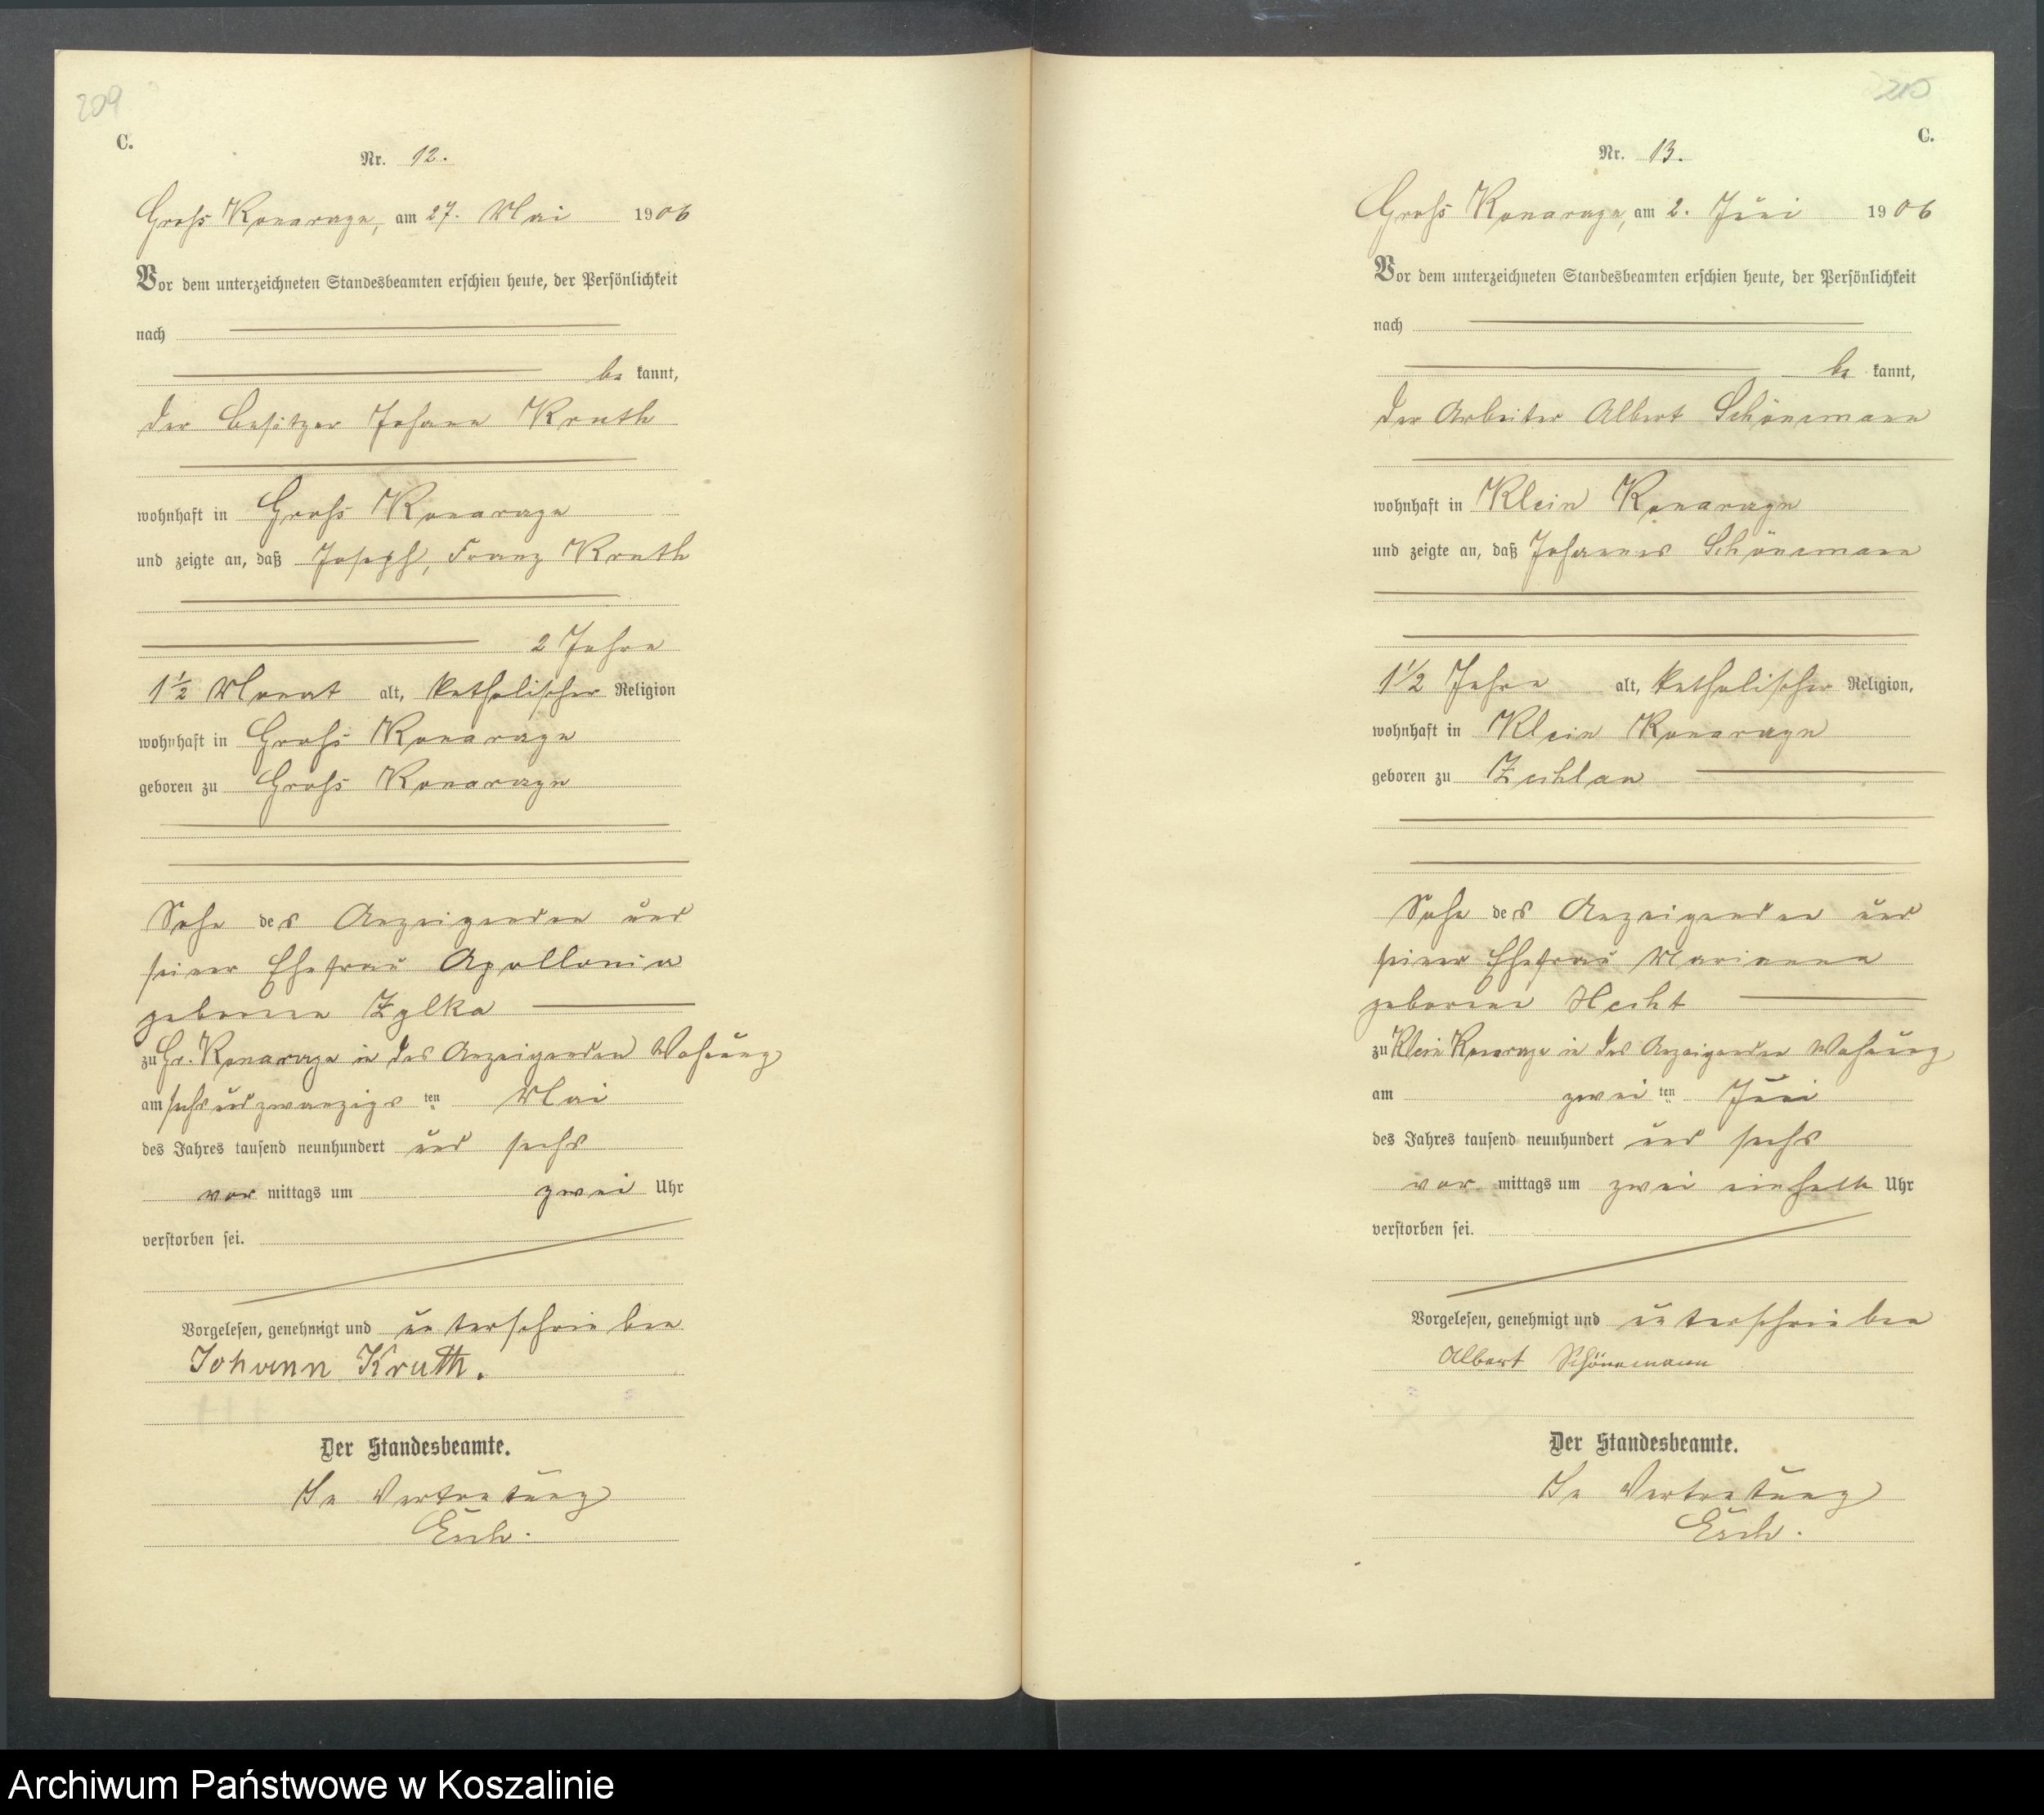 209
C.
Nr. 12.
Groß Konarzyn, am 27. Mai 1906
Vor dem unterzeichneten Standesbeamten erschien heute, der Persönlichkeit
nach
be kannt,
der Besitzer Johann Kruth
wohnhaft in Groß Konarzyn
und zeigte an, daß Joseph, Franz Kruth
2 Jahre
1 1/2 Monat alt, katholischer Religion
wohnhaft in Groß Konarzyn
geboren zu Groß Konarzyn
Sohn des Anzeigenden und
seiner Ehefrau Apollonia
geborene Zylka
zu Gr. Konarzyn in des Anzeigenden Wohnung
am sechsundzwanzigs ten Mai
des Jahres tausend neunhundert und sechs
vor mittags um zwei Uhr
verstorben sei.
Vorgelesen, genehmigt und unterschrieben
Johann Kruth.
Der Standesbeamte.
In Vertretung
210
C.
Nr. 13.
Groß Konarzyn, am 2. Juni 1906
Vor dem unterzeichneten Standesbeamten erschien heute, der Persönlichkeit
nach
be kannt,
der Arbeiter Albert Schönemann
wohnhaft in Klein Konarzyn
und zeigte an, daß Johannes Schönemann
1 1/2 Jahre alt, katholischer Religion,
wohnhaft in Klein Konarzyn
geboren zu Zechlau
Sohn des Anzeigenden und
seiner Ehefrau Marianna
geborene Hecht
zu Klein Konarzyn in des Anzeigenden Wohnung
am zwei ten Juni
des Jahres tausend neunhundert und sechs
vor mittags um zwei einhalb Uhr
verstorben sei.
Vorgelesen, genehmigt und unterschrieben
Albert Schönemann
Der Standesbeamte.
In Vertretung
Archiwum Państwowe w Koszalinie